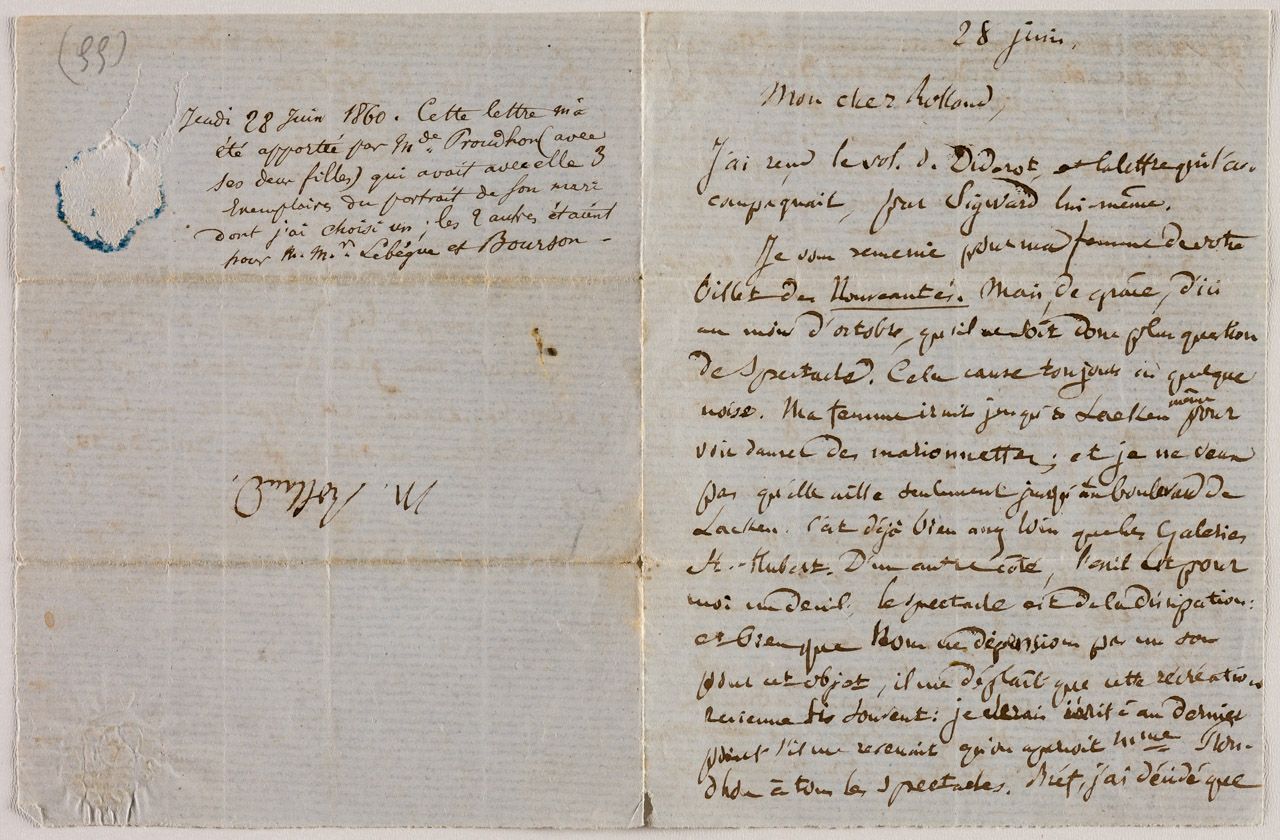 (99)
Jeudi 28 Juin 1860. Cette lettre m'a
été apportée par Mde. Proudhon (avec
ses deux filles) qui avait avec elle 3
Exemplaires du portrait de son mari
dont j'ai choisi un; les 2 autres étaient
pour M. Mrs. Lebègue et Bourson —
M. Rolland.
28 juin,
Mon cher Rolland,
J'ai reçu le vol. de Diderot, et la lettre qui l'ac-
compagnait, pour Sigward lui-même.
Je vous remercie pour ma femme de votre
billet des Nouveautés. Mais, de grâce, d'ici
au mois d'octobre, qu'il ne soit donc plus question
de Spectacle. Cela cause toujours ici quelque
noise. Ma femme irait jusqu'à Laeken même pour
voir danser des marionnettes; et je ne veux
pas qu'elle aille seulement jusqu'au boulevard de
Laeken. C'est déjà bien assez loin que les Galeries
St.-Hubert. D'un autre côté, l'exil est pour
moi un deuil; le spectacle est de la dissipation:
et bien que Nous ne dépensions pas un sou
pour cet objet, il me déplaît que cette récréation
revienne si souvent: je serais irrité au dernier
point s'il me revenait qu'on aperçoit Mme Prou-
dhon à tous les spectacles. Bref, j'ai décidé que